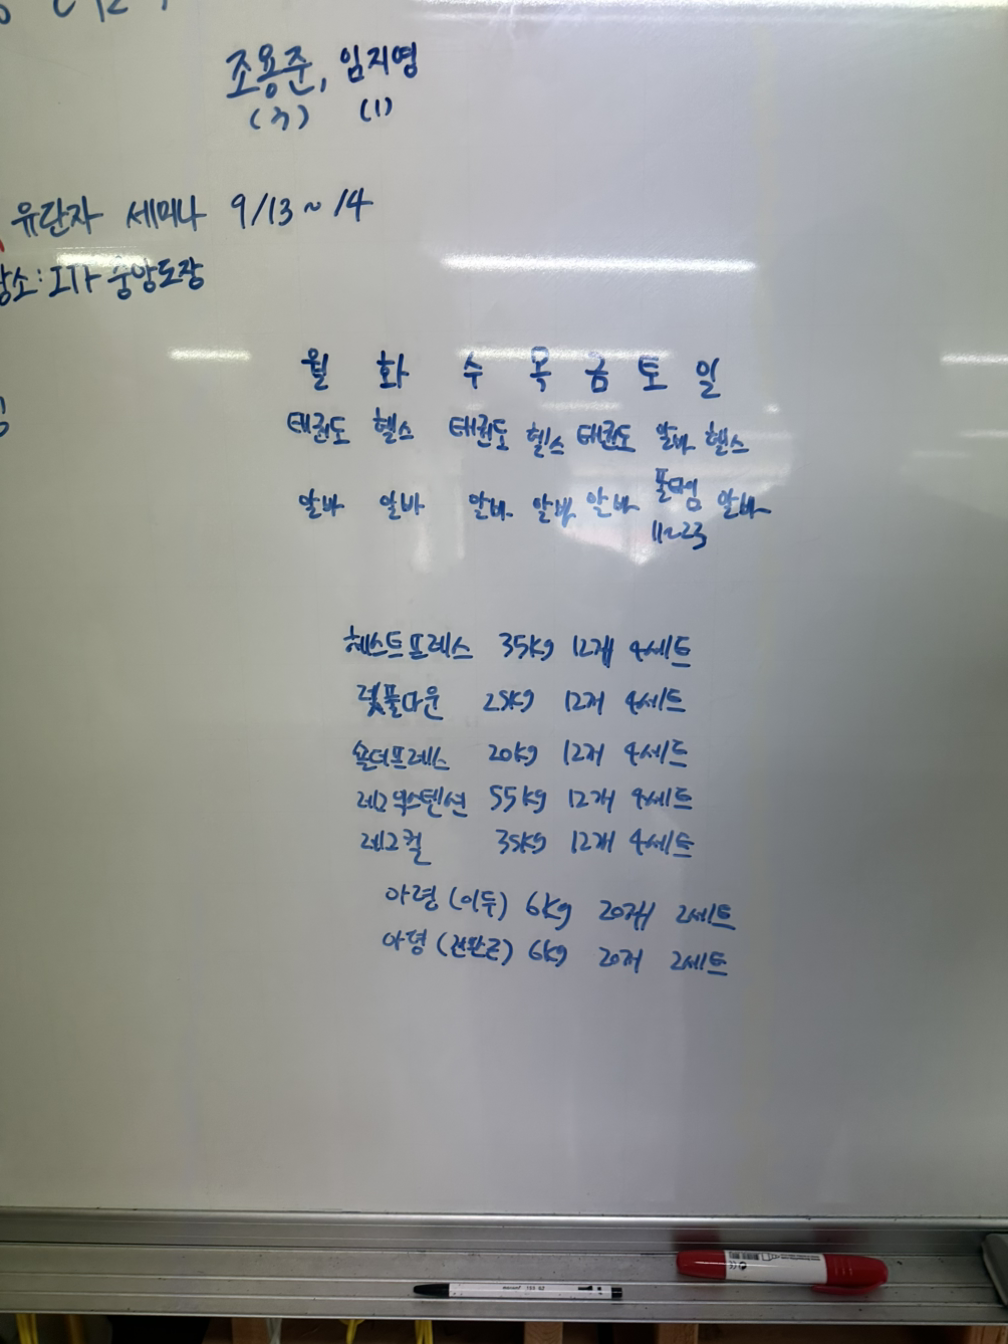 조용준, 임지영
(수) (1)
유단자 세미나 9/13~14
장소: ITF 중앙도장
월 화 수 목 금 토 일
태권도 헬스 태권도 헬스 태권도 알바 헬스
알바 알바 알바 알바 알바 풀타임 알바
11~23
체스트프레스 35kg 12개 4세트
렛풀다운 25kg 12개 4세트
숄더프레스 20kg 12개 4세트
레그익스텐션 55kg 12개 4세트
레그컬 35kg 12개 4세트
아령 (이두) 6kg 20개 2세트
아령 (전완근) 6kg 20개 2세트